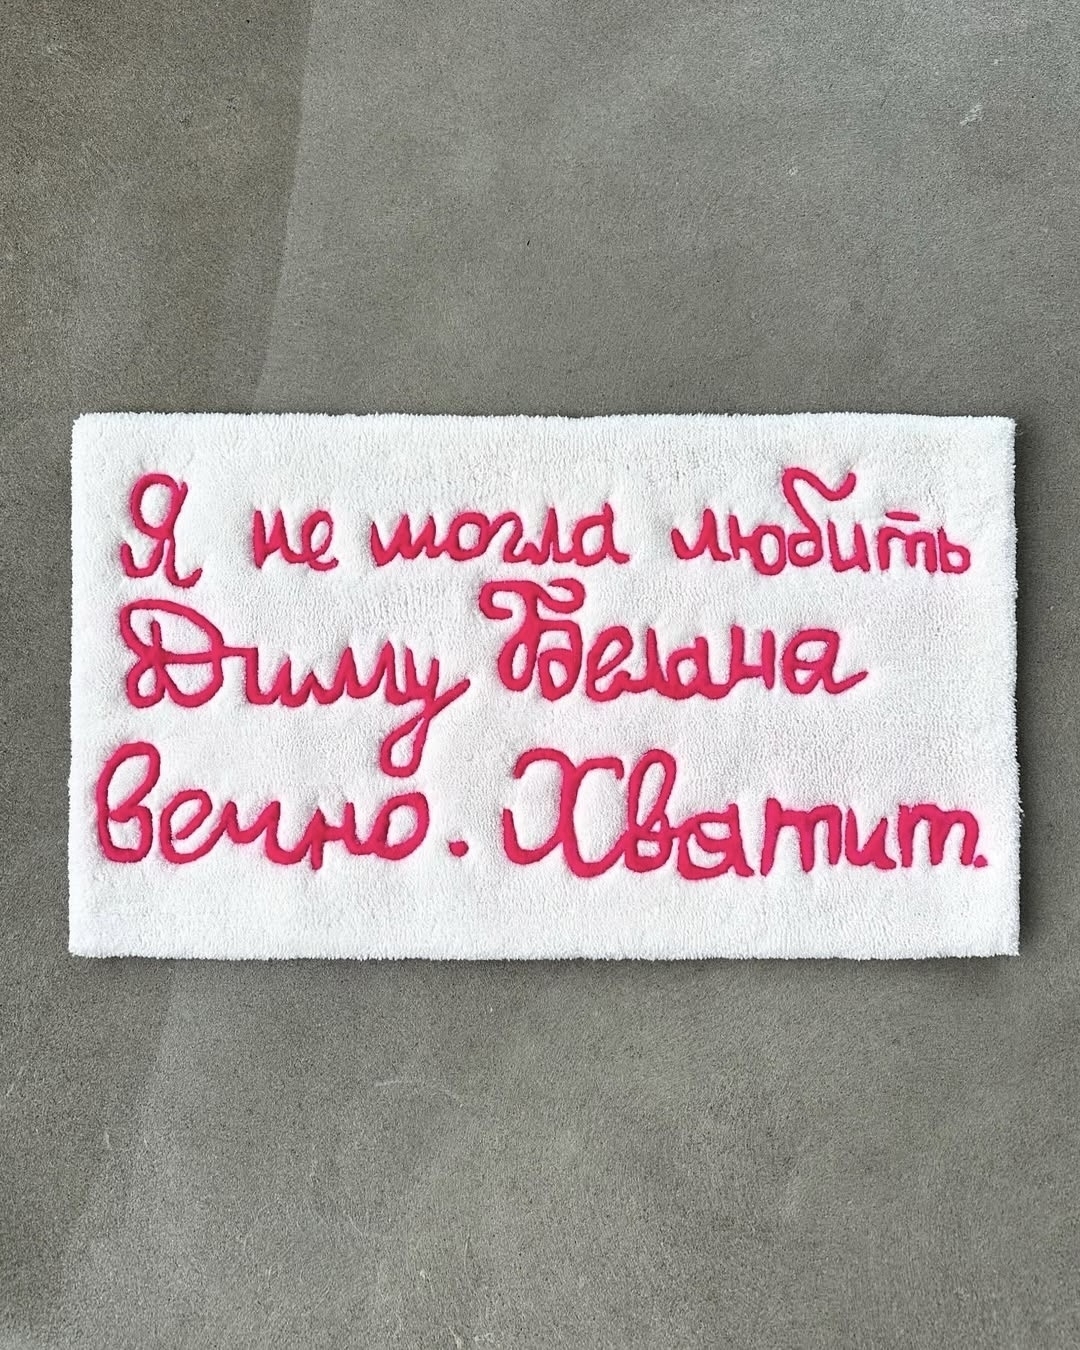 Я не могла любить
Диму Белана
вечно. Хватит.